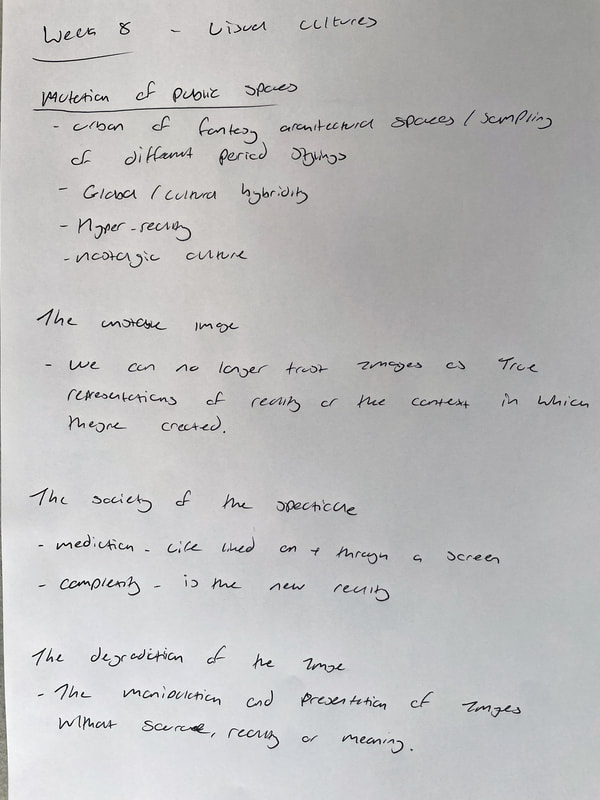 Week 8 - Visual cultures
Mutation of public spaces
- urban of fantasy architectural spaces / sampling
of different period stylings
- Global / cultural hybridity
- Hyper-reality
- nostalgic culture
The unstable image
- We can no longer trust images as True
representations of reality or the context in which
theyre created.
The society of the specticle
- mediation - life lived on + through a screen
- complexity - is the new reality
The degradation of the image
- The manipulation and presentation of images
without source, reality or meaning.